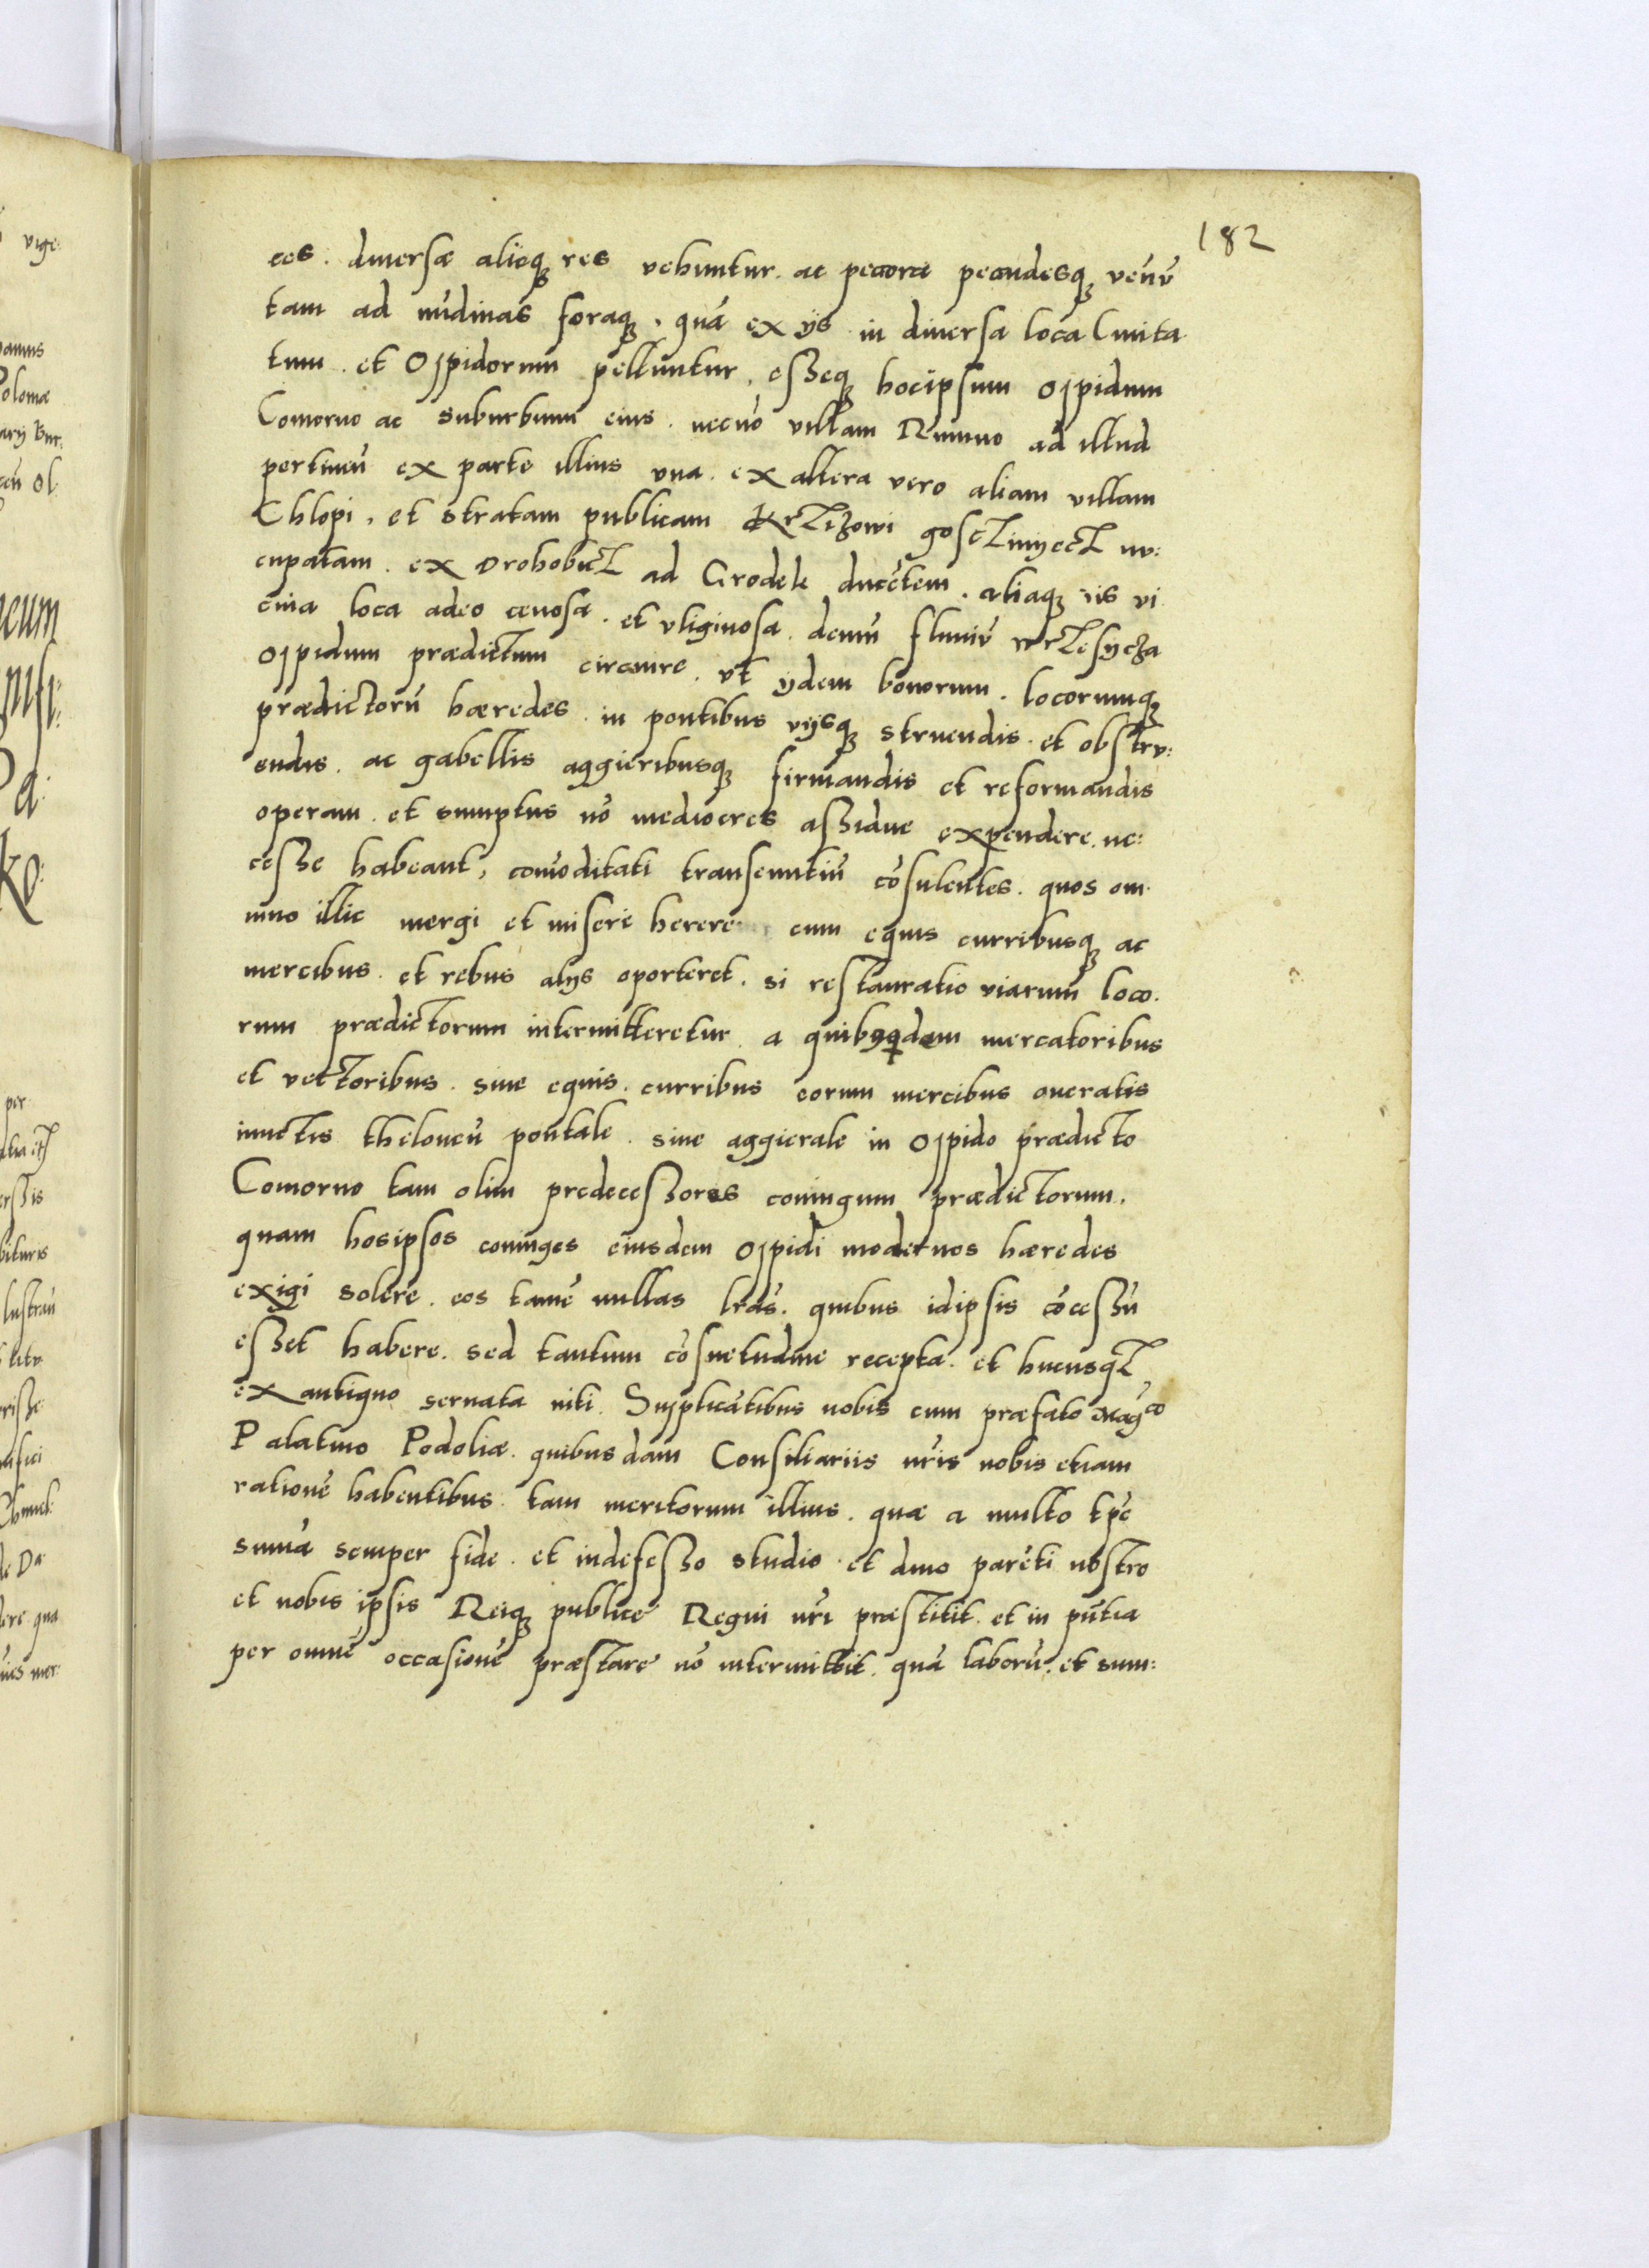 182
ces. diuersæ aliæq; res vehuntur. ac pecora pecudesq; venū
tam ad nūdinas foraq;. quā ex ijs in diuersa loca Ciuita
tum. et Oppidorum pelluntur, eszeq; hocipsum oppidum
Comorno ac suburbium eius. necnō villam Rumno ad illud
pertineñ ex parte illius vna. ex altera vero aliam villam
Chlopi. et stratam publicam gosc
cupatam. ex Drohobicz ad Grodek ducētem. aliaq; iis vi
cina loca adeo cenosa. et vliginosa. demū fluuiū
oppidum prædictum circuire. vt ijdem bonorum. locorumq;
prædictorū hæredes in pontibus vijsq; struendis. et obstru:
endis. ac gabellis aggieribusq; firmandis et reformandis
operam. et sumptus nō mediocres aszidue expendere. ne:
cesze habeant, comōditati transeuntiū cōsulentes. quos om
nino illic mergi et misere herere cum equis curribusq; ac
mercibus. et rebus alijs oporteret. si restauratio viarum loco.
rum prædictorum intermitteretur a quibusdam mercatoribus
et vectoribus. siue equis. curribus eorum mercibus oneratis
inuectis theloneū pontale. siue aggierale in oppido prædicto
Comorno tam olim predeceszores coniugum prædictorum.
quam hosipsos coniuges eiusdem oppidi modernos hæredes
exigi solere. eos tamē nullas lr̄as. quibus idipsis cōceszū
eszet habere. sed tantum cōsuetudine recepta. et hucusq;
ex antiquo seruata niti. Supplicātibus nobis cum præfato Mag̃co
Palatino Podoliæ. quibusdam Consiliariis nr̄is nobis etiam
rationē habentibus tam meritorum illius. quæ a multo tp̄e
sum̄a semper fide. et indefeszo studio et diuo parēti nostro
et nobis ipsis Reiq; publicę Regni nr̄i præstitit. et in pn̄tia
per omnē occasionē præstare nō intermittit. quā laborū. et sum: